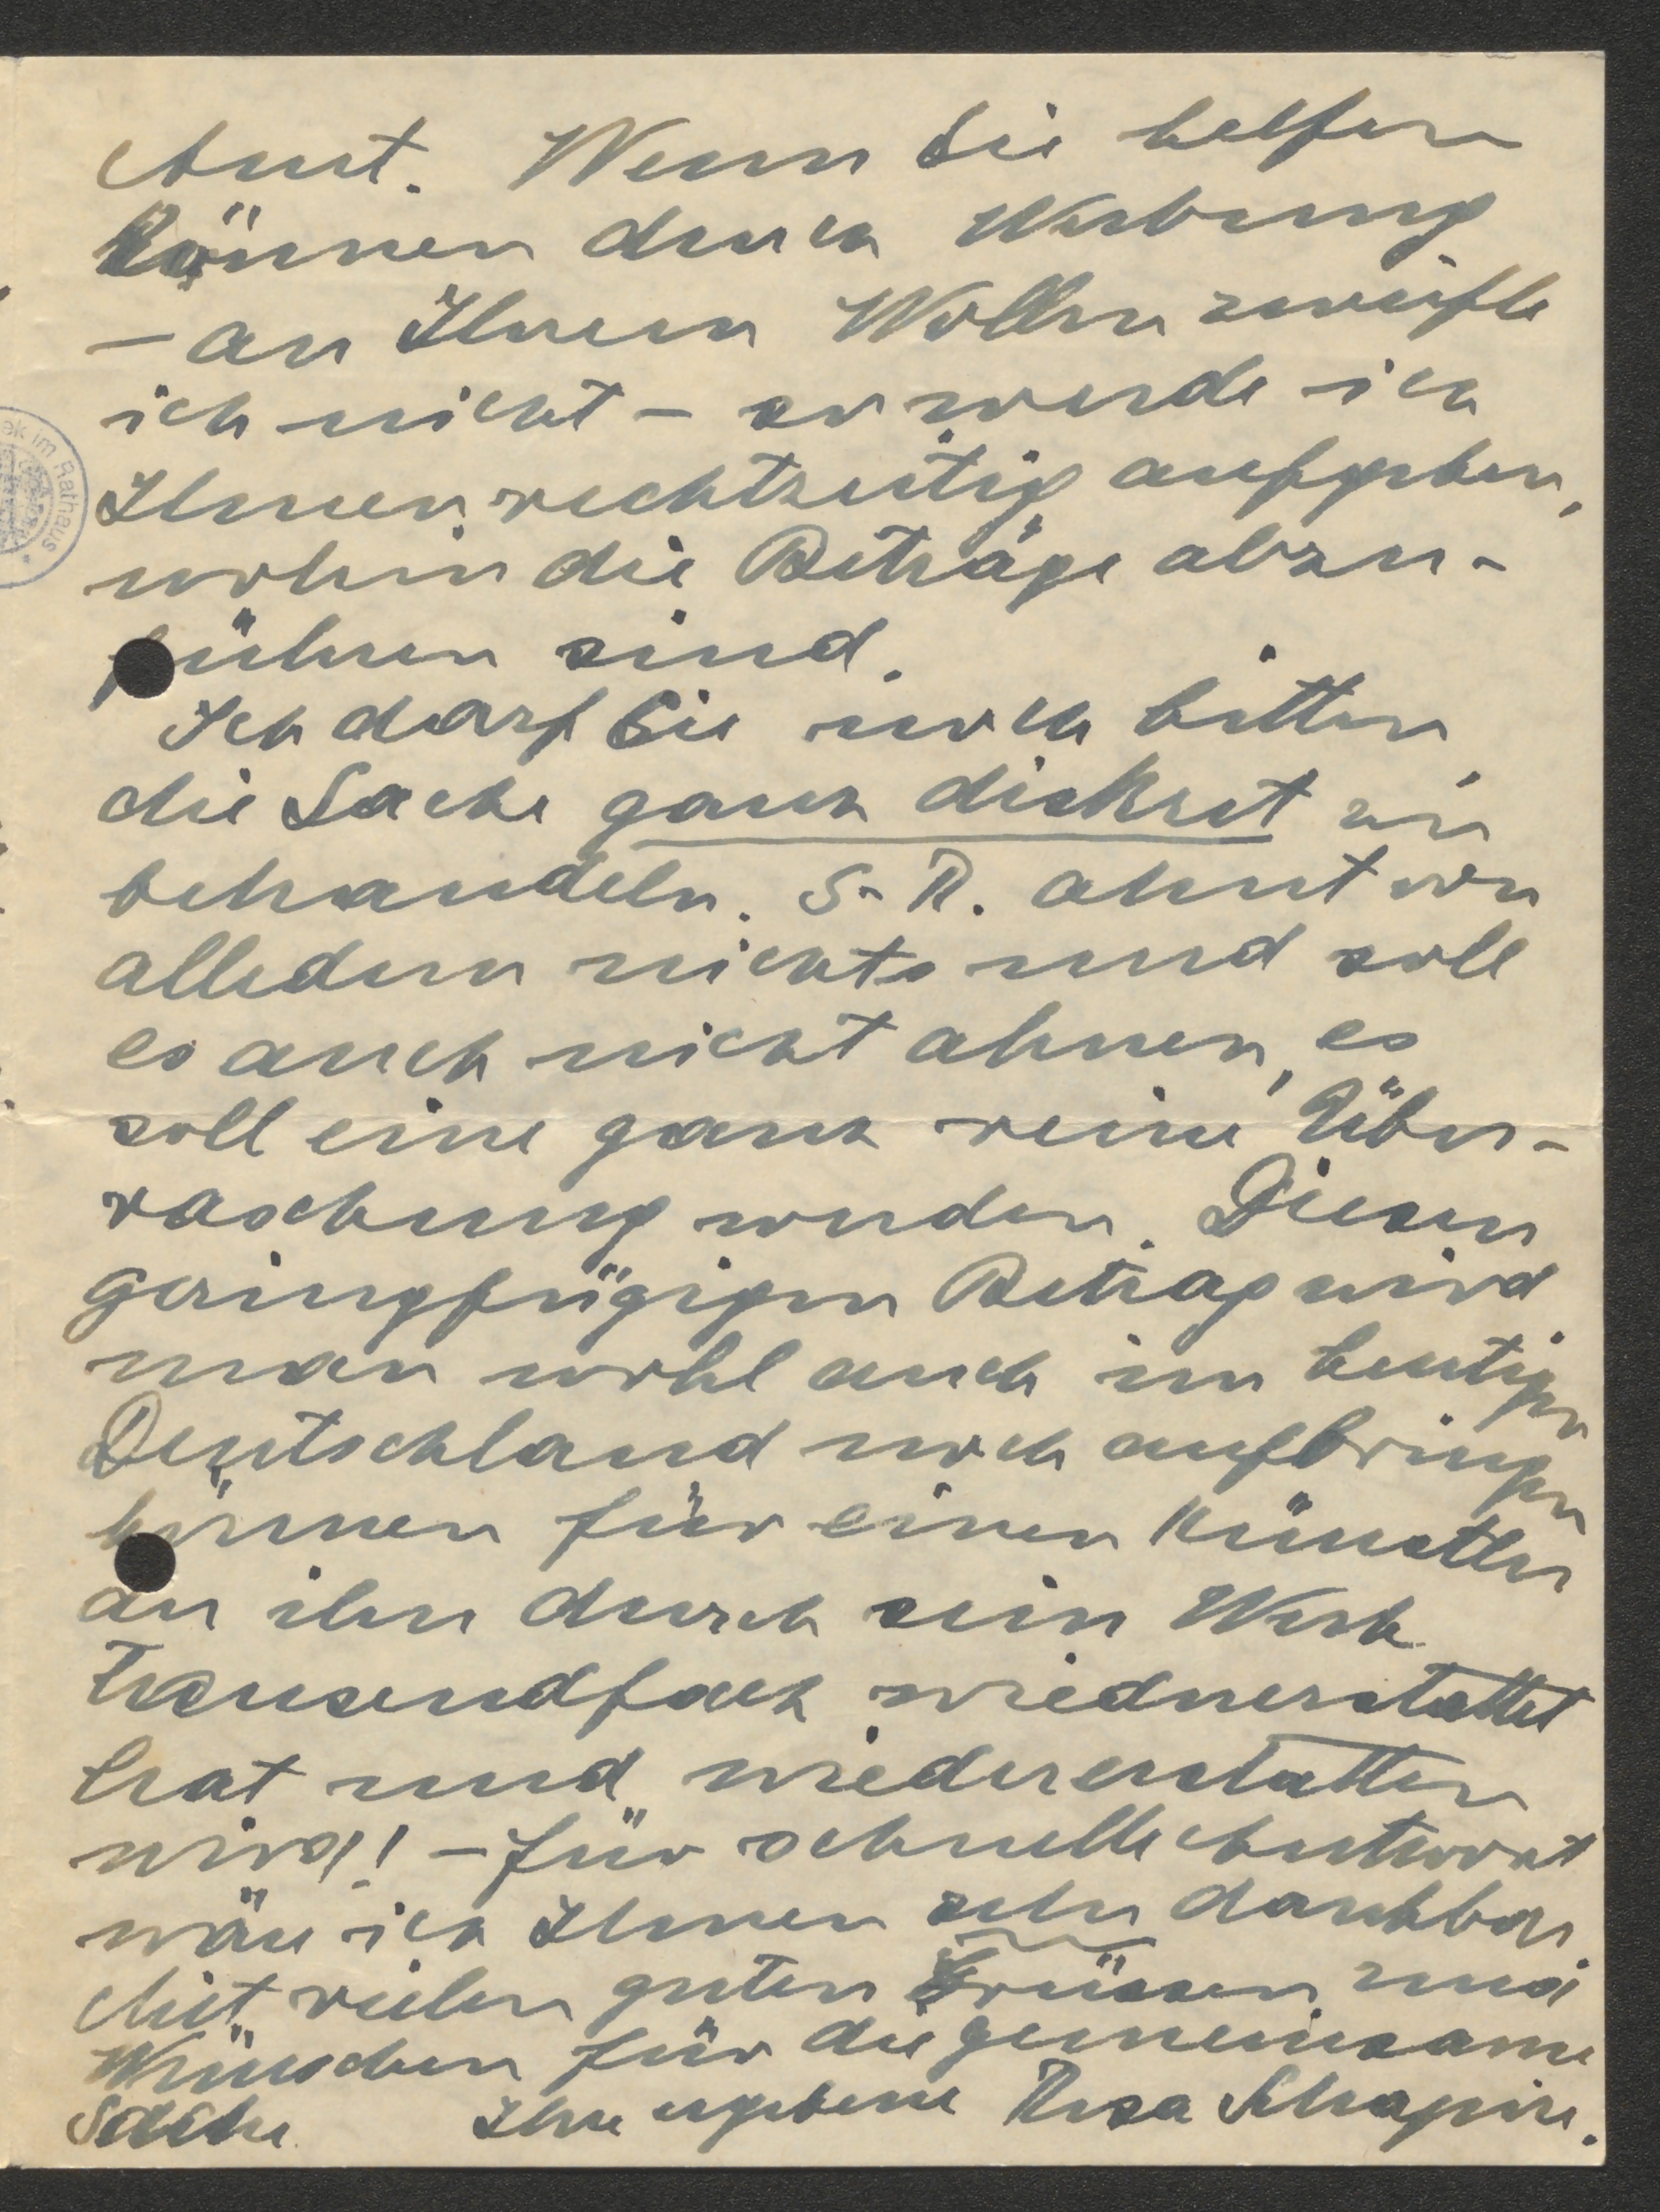 Amt. Wenn Sie helfen
können durch Werbung
– an Ihrem Wollen zweifle
ich nicht – so werde ich
Ihnen rechtzeitig aufgeben,
wohin die Beträge abzu-
führen sind.
Ich darf Sie noch bitten,
die Sache ganz diskret zu
behandeln. S-R. ahnt von
alledem nichts und soll
es auch nicht ahnen, es
soll eine ganz reine Über-
raschung werden. Diesen
geringfügigen Betrag wird
man wohl auch im heutigen
Deutschland noch aufbringen
können für einen Künstler
der ihn durch sein Werk
tausendfach wiedererstattet
hat und wiedererstatten
wird! – Für schnelle Antwort
wäre ich Ihnen sehr dankbar.
Mit vielen guten Grüssen und
Wünschen für die gemeinsame
Sache Ihre ergebene Rosa Schapire.
ek im Rathaus